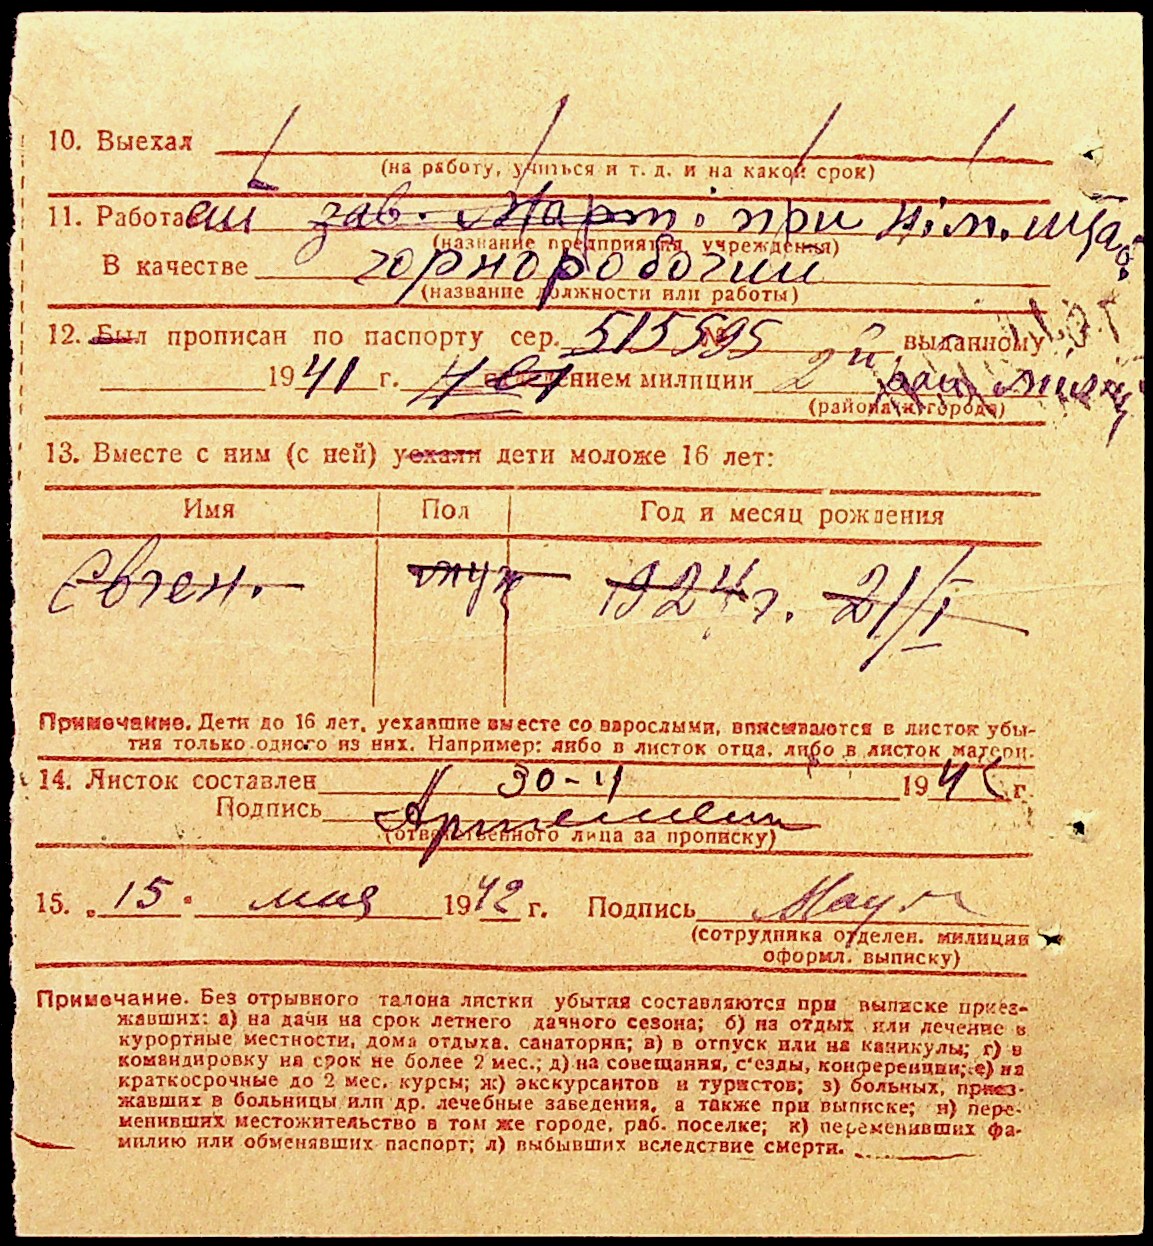 10. Выехал
(на работу, учиться и т. д. и на какой срок)
11. Работает зав. Март. при
(название предприятия, учреждения)
В качестве чорноробочий
(название должности или работы)
12. Был прописан по паспорту сер. 515595 № выданному
1941 г. отделением милиции 2й
(района и города)
13. Вместе с ним (с ней) уехали дети моложе 16 лет:
Имя Пол Год и месяц рождения
Евген. муж 1924 г. 21/I
Примечание. Дети до 16 лет, уехавшие вместе со взрослыми, вписываются в листок убы-
тия только одного из них. Например: либо в листок отца, либо в листок матери.
14. Листок составлен 30-4 194 г.
Подпись
(ответственного лица за прописку)
15. „15" мая 1942 г. Подпись
(сотрудника отделен. милиции
оформл. выписку)
Примечание. Без отрывного талона листки убытия составляются при выписке приез-
жавших: а) на дачи на срок летнего дачного сезона; б) на отдых или лечение в
курортные местности, дома отдыха, санатории; в) в отпуск или на каникулы; г) в
командировку на срок не более 2 мес.; д) на совещания, с'езды, конференции; е) на
краткосрочные до 2 мес. курсы; ж) экскурсантов и туристов; з) больных, приез-
жавших в больницы или др. лечебные заведения, а также при выписке; и) пере-
менивших местожительство в том же городе, раб. поселке; к) переменивших фа-
милию или обменявших паспорт; л) выбывших вследствие смерти.